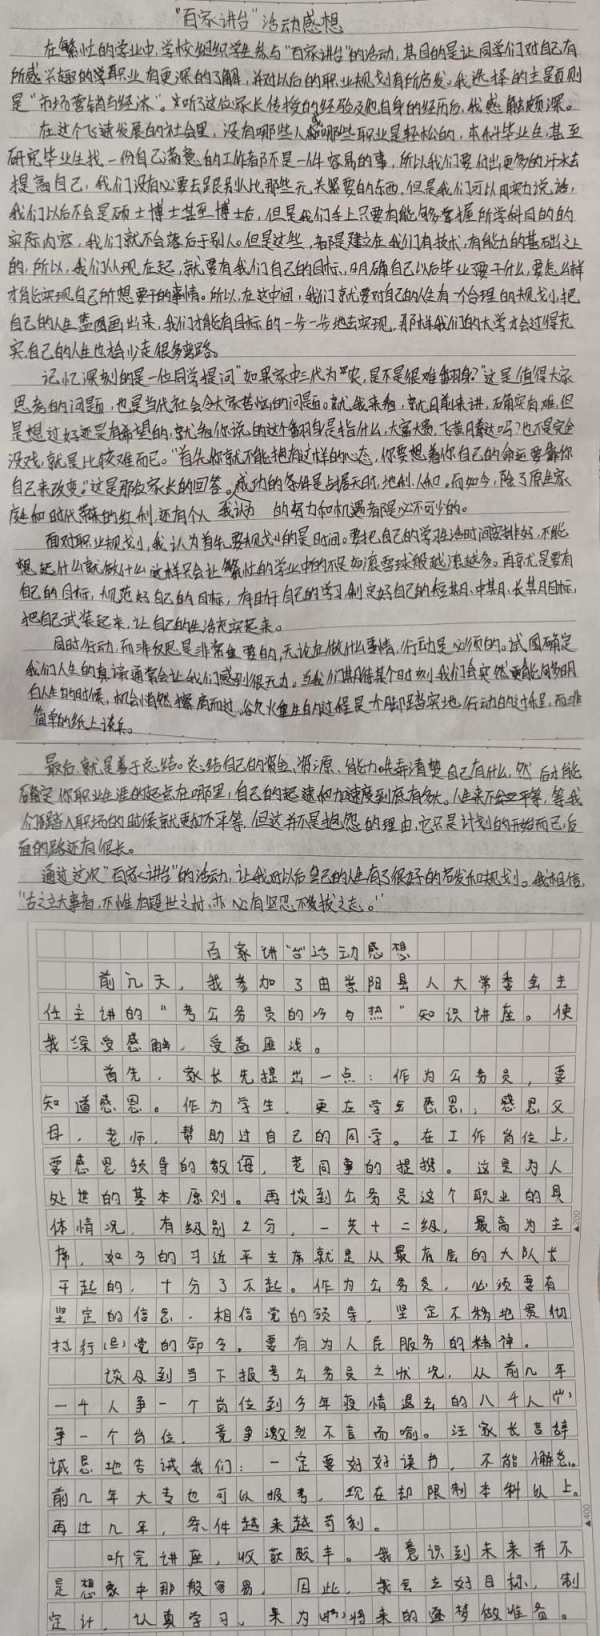 "百家讲台"活动感想
在繁忙的学业中,学校组织学生参与"百家讲台"的活动,其目的是让同学们对自己有
所感兴趣的学职业有更深的了解,并对以后的职业规划有所启发。我选择的主题则
是"市场营销与经济"。听了这位家长传授的经验及他自身的经历后,我感触颇深。
在这个飞速发展的社会里,没有哪些人哪些职业是轻松的,本科毕业生,甚至
研究毕业生找一份自己满意的工作都不是一件容易的事,所以我们要付出更多的汗水去
提高自己,我们没有必要去跟别人比那些无关紧要的东西,但是我们可以用实力说话,
我们以后不会是硕士博士甚至博士后,但是我们手上只要有能够掌握所学科目的的
实际内容,我们就不会落后于别人。但是这些,都是建立在我们有技术,有能力的基础之上
的,所以,我们从现在起,就要有我们自己的目标,明确自己以后毕业要干什么,要怎么样
才能实现自己所想要干的事情。所以,在这中间,我们就要对自己的人生有一个合理的规划,把
自己的人生蓝图画出来,我们才能有目标的一步一步地去实现,那样我们的大学才会过得充
实,自己的人生也会少走很多弯路。
记忆深刻的是一位同学提问"如果家中三代为农,是不是很难翻身?"这是值得大家
思考的问题,也是当代社会令大家苦恼的问题。就我来看,就目前来讲,确实有难,但
是想过好还是有希望的,就看你说的这个翻身是指什么,大富大贵,飞黄腾达吗?也不是完全
没戏,就是比较难而已。"首先你就不能抱有这样的心态,你要想着你自己的命运要靠你
自己来改变。"这是那位家长的回答。成功的条件是占据天时,地利,人和。而如今,除了原生家
庭和时代带来的红利,还有个人 我认为 的努力和机遇都是必不可少的。
面对职业规划,我认为首先要规划的是时间。要把自己的学习生活时间安排好,不能
想起什么就做什么,这样只会让繁忙的学业中的不足如滚雪球般越滚越多。再者尤是要有
自己的目标,规范好自己的目标,有助于自己的学习,制定好自己的短期,中期,长期目标,
把自己武装起来,让自己的生活充实起来。
同时行动,而非反思是非常重要的,无论在做什么事情,行动是必须的。试图确定
我们人生的真谛通常会让我们感到很无力。当我们期待某个时刻我们会突然能够明
白人生的时候,机会悄然擦肩而过,浴火重生的过程是个脚踏实地,行动的过程,而非
简单的纸上谈兵。
最后,就是善于总结。总结自己的资金,资源,能力,先弄清楚自己有什么,然后才能
确定你职业生涯的起点在哪里,自己的起速和加速度到底有多大。人生来不会平等,等我
们踏入职场的时候就更加不平等,但这并不是抱怨的理由,它只是计划的开始而已,后
面的路还有很长。
通过这次"百家讲台"的活动,让我对以后自己的人生有了很好的启发和规划。我相信,
"古之立大事者,不惟有超世之材,亦必有坚忍不拔之志。"
百家讲"台"活动感想
前几天,我参加了由崇阳县人大常委会主
任主讲的"考公务员的冷与热"知识讲座。使
我深受感触,受益匪浅。
首先,家长先提出一点:作为公务员,要
知道感恩。作为学生,更应学会感恩,感恩父
母,老师,帮助过自己的同学。在工作岗位上,
要感恩领导的教诲,老同事的提携。这是为人
处世的基本原则。再谈到公务员这个职业的具
体情况,有级别之分,一共十二级,最高为主
席,如今的习近平主席就是从最底层的大队长
干起的,十分了不起。作为公务员,必须要有
坚定的信念,相信党的领导,坚定不移地贯彻
执行党的命令。要有为人民服务的精神。
谈及到当下报考公务员之状况,从前几年
一千人争一个岗位到今年疫情退去的八千人
争一个岗位,竞争激烈不言而喻。汪家长言辞
诚恳地告诫我们:一定要好好读书,不能懈怠。
前几年大专也可以报考,现在却限制本科以上。
再过几年,条件越来越苛刻。
听完讲座,收获颇丰。我意识到未来并不
是想象中那般容易,因此,我会立好目标,制
定计,认真学习,来为将来的逐梦做准备。